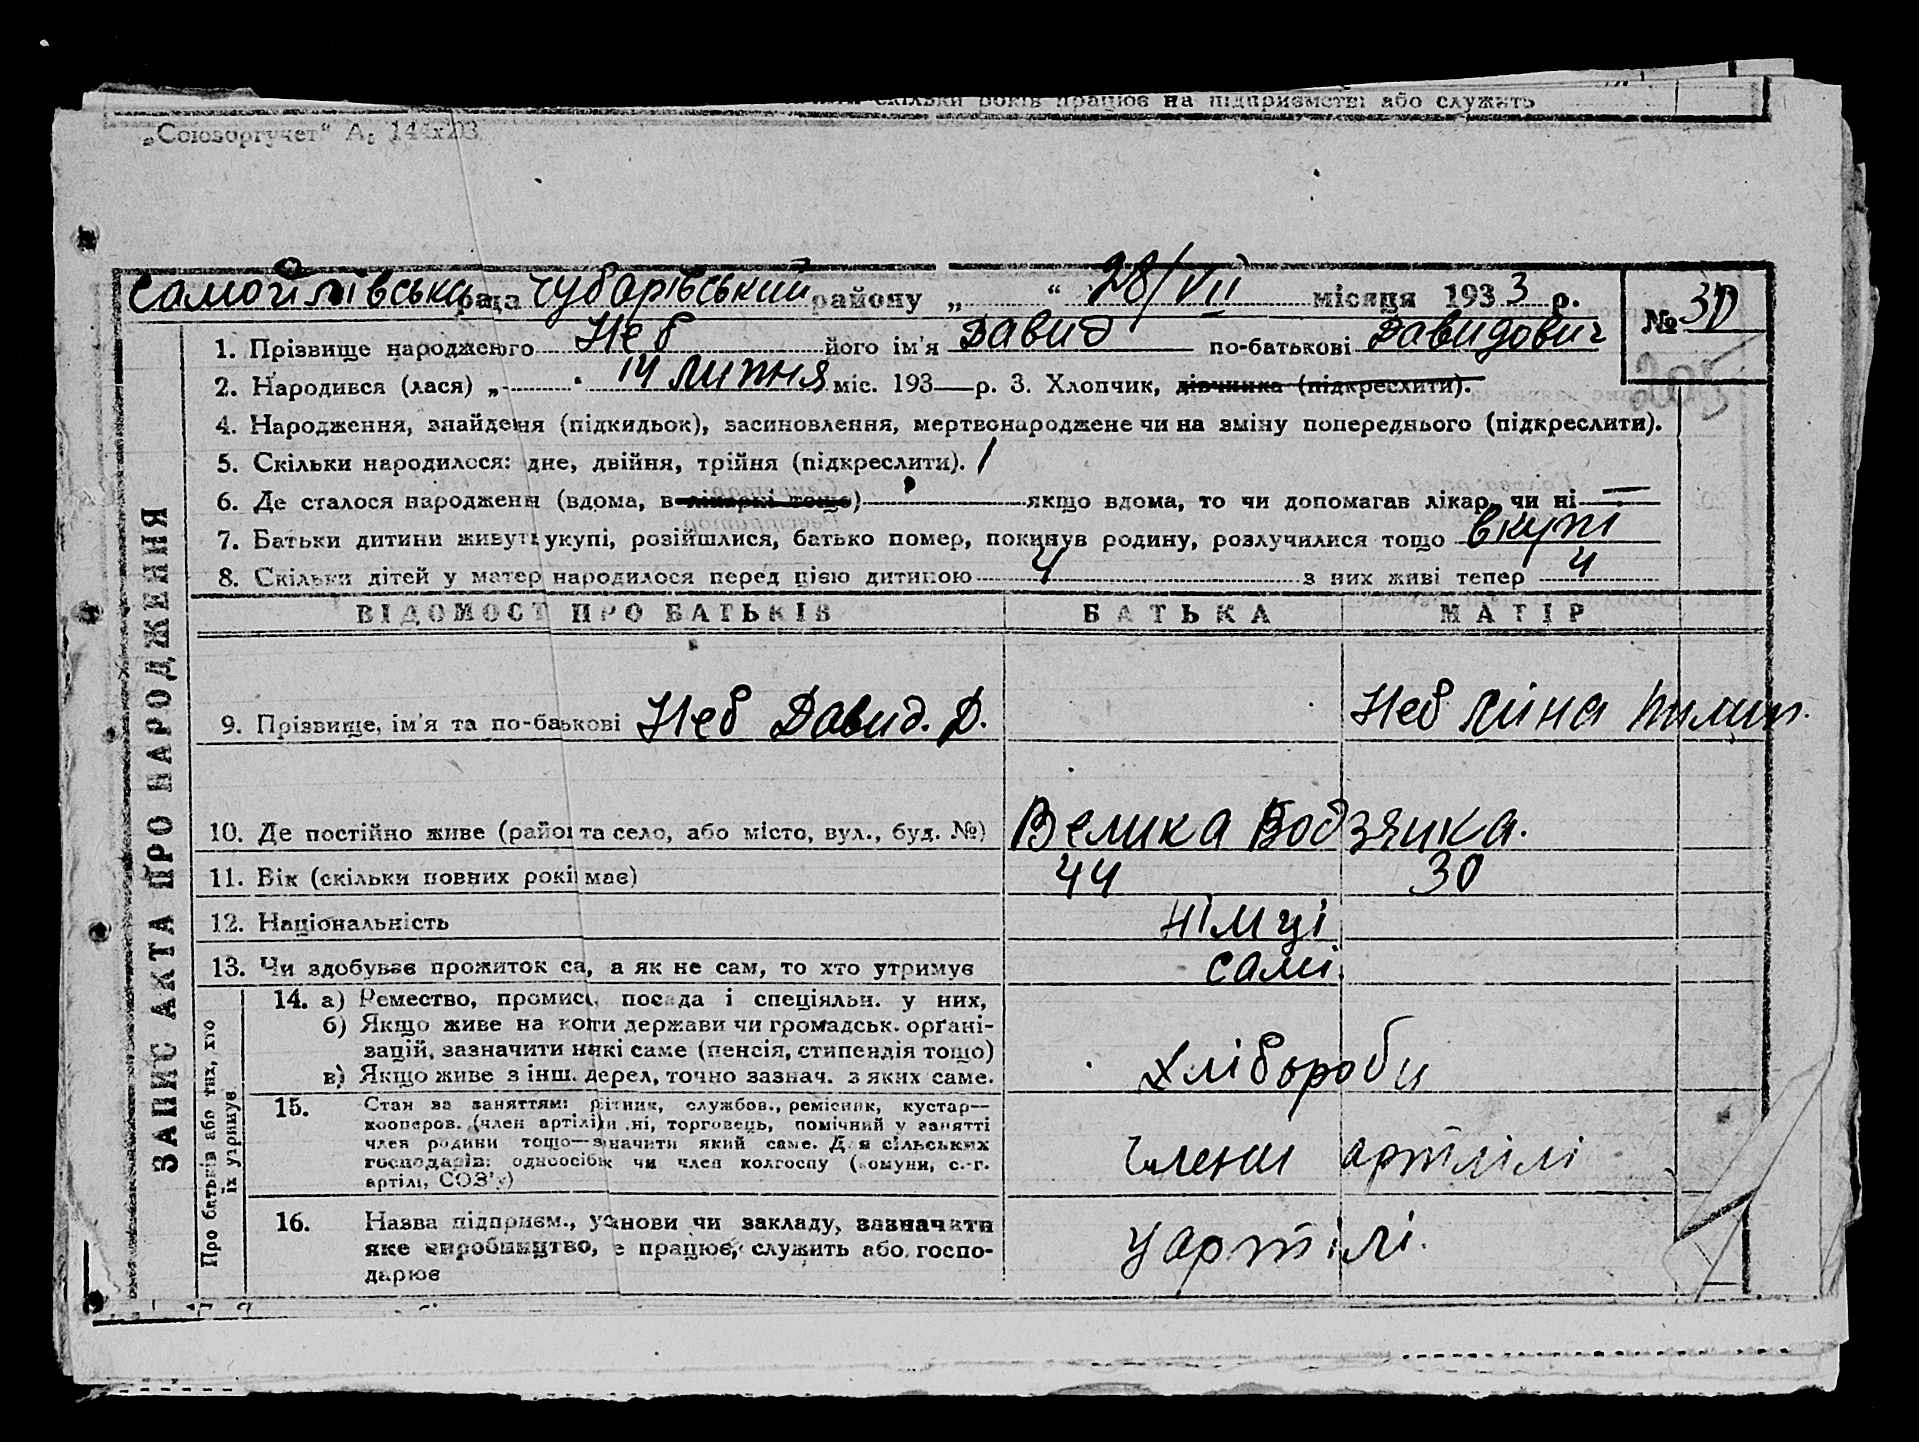 скільки років працює на підприємстві або служить
„Союзоргучет“ А. 144х203
Самойлівська рада Чубарівський району „ “ 28/VII місяця 1933 р. № 30
1. Прізвище народженого Неб його ім'я Давид по-батькові Давидович
205
2. Народився (лася) „ 14 липня міс. 193 — р. 3. Хлопчик, дівчинка (підкреслити).
4. Народження, знайденя (підкидьок), засиновлення, мертвонароджене чи на зміну попереднього (підкреслити).
5. Скільки народилося: дне, двійня, трійня (підкреслити). 1
6. Де сталося народженн (вдома, в лікарні тощо) якщо вдома, то чи допомагав лікар, чи ні —
7. Батьки дитини живуть укупі, розійшлися, батько помер, покинув родину, розлучилися тощо вкупі
8. Скільки дітей у матер народилося перед цією дитиною 4 з них живі тепер 4
ЗАПИС АКТА ПРО НАРОДЖЕННЯ
ВІДОМОСТ ПРО БАТЬКІВ БАТЬКА МАТІР
9. Прізвище, ім'я та по-батькові Неб Давид. Д. Неб Ліна
10. Де постійно живе (район та село, або місто, вул., буд. №) Велика Водзянка.
11. Вік (скільки повних рокі має) 44 30
12. Національність німці
13. Чи здобуває прожиток са, а як не сам, то хто утримує самі.
Про батьків або тих, хто їх утримує
14. а) Ремество, промисл, посада і спеціяльн. у них,
б) Якщо живе на кошти держави чи громадськ. орґані-
зацій, зазначити які саме (пенсія, стипендія тощо)
в) Якщо живе з інш. джерел, точно зазнач. з яких саме.
хлібороби
15. Стан за заняттям: робітник, службов., ремісник, кустар—
кооперов. (член артілі) ні, торговець, помічний у занятті
член родини тощо—зазначити який саме. Для сільських
господарів: одноосібн чи член колгоспу (комуни, с.-г.
артілі, СОЗ'у)
члени артілілі
16. Назва підприєм., установи чи закладу, зазначити
яке виробництво, е працює, служить або госпо-
дарює
у артілі.